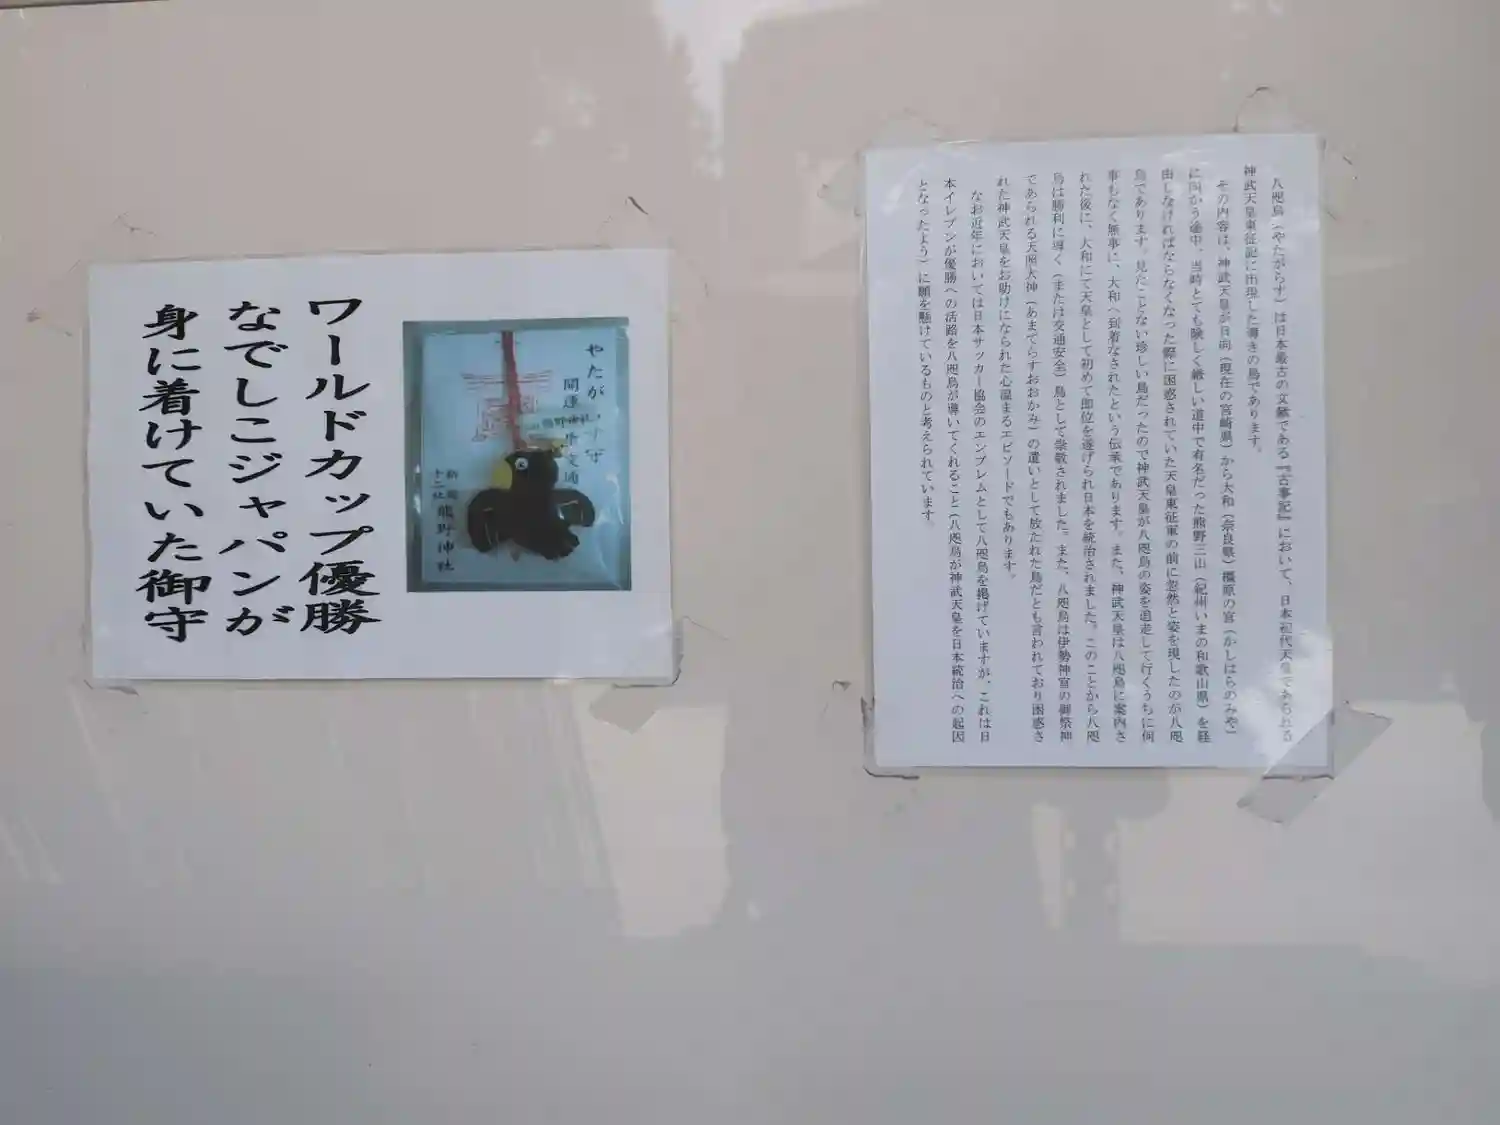 ワールドカップ優勝
なでしこジャパンが
身に着けていた御守
やたがらす守
開運
交通
新宿
十二社
熊野神社
八咫烏（やたがらす）は日本最古の文献である『古事記』において、日本初代天皇であられる
神武天皇東征記に出現した導きの鳥であります。
その内容は、神武天皇が日向（現在の宮崎県）から大和（奈良県）橿原の宮（かしはらのみや）
に向かう途中、当時とても険しく厳しい道中で有名だった熊野三山（紀州いまの和歌山県）を経
由しなければならなくなった際に困惑されていた天皇東征軍の前に忽然と姿を現したのが八咫
烏であります。見たことない珍しい鳥だったので神武天皇が八咫烏の姿を追走して行くうちに何
事もなく無事に、大和へ到着なされたという伝承であります。また、神武天皇は八咫烏に案内さ
れた後に、大和にて天皇として初めて即位を遂げられ日本を統治されました。このことから八咫
烏は勝利に導く（または交通安全）鳥として崇敬されました。また、八咫烏は伊勢神宮の御祭神
であられる天照大神（あまてらすおおかみ）の遣いとして放たれた鳥だとも言われており困惑さ
れた神武天皇をお助けになられた心温まるエピソードでもあります。
なお近年においては日本サッカー協会のエンブレムとして八咫烏を掲げていますが、これは日
本イレブンが優勝への活路を八咫烏が導いてくれること（八咫烏が神武天皇を日本統治への起因
となったよう）に願を懸けているものと考えられています。